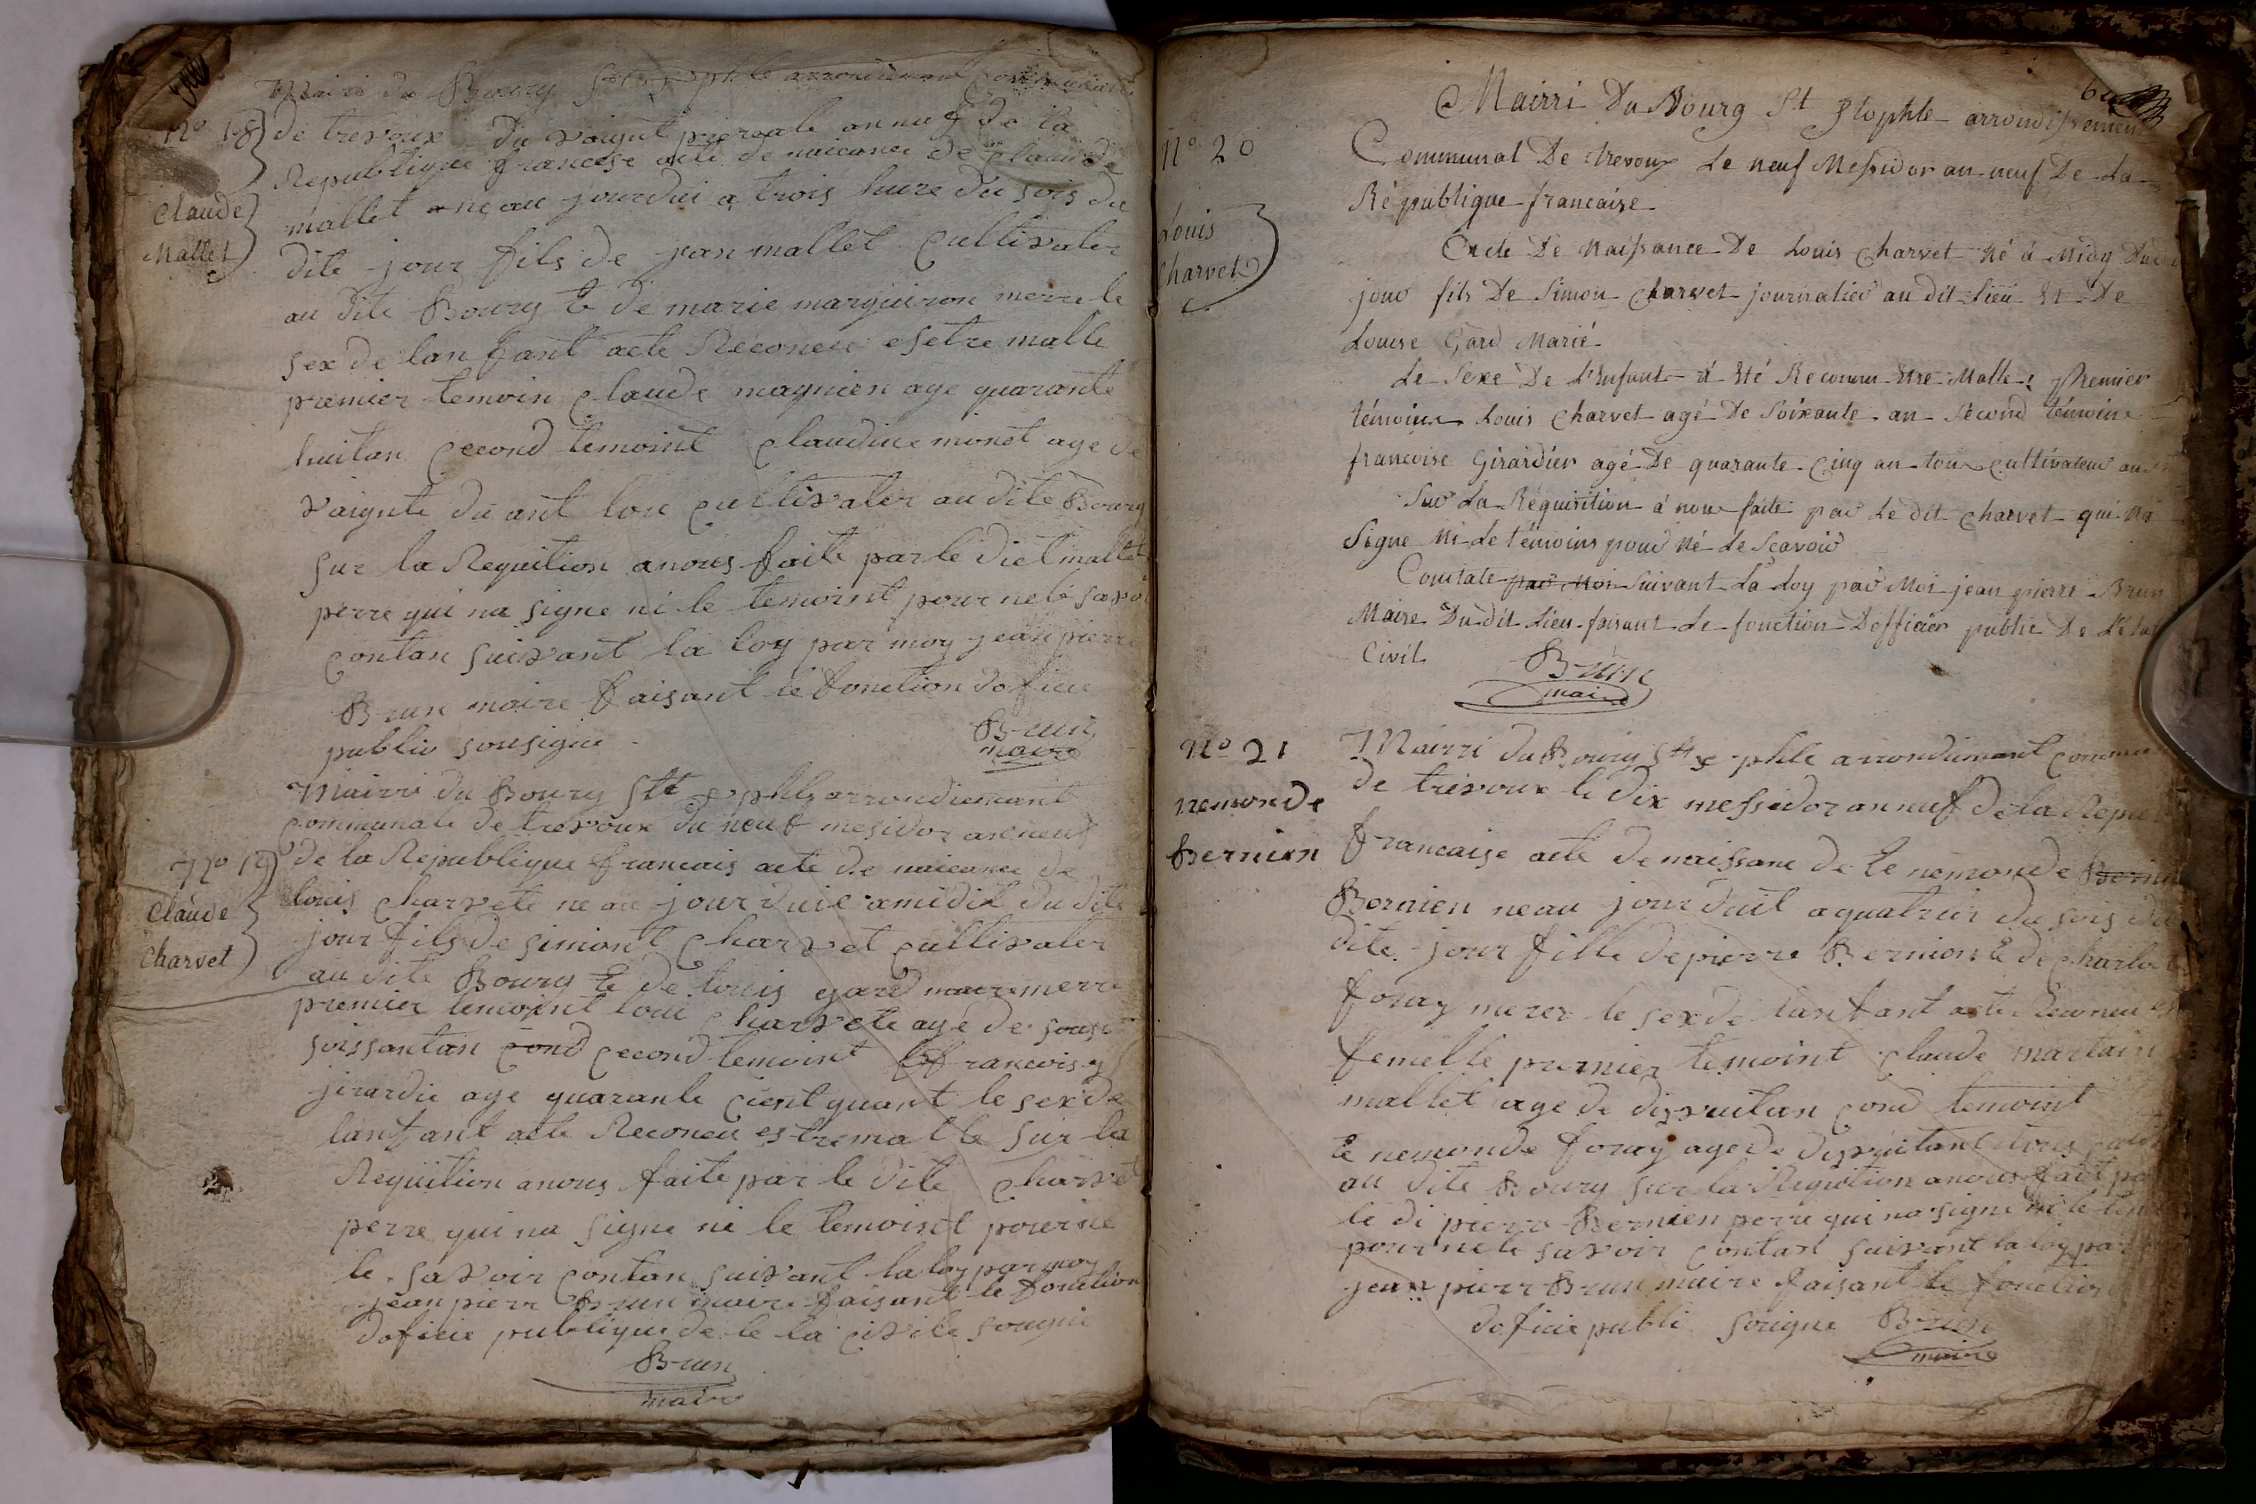 Mairi du Bourg St xphle arrondiement Communale
N° 18
de trevoux du vaigut prereale an nuf de la
Republique francese acte de naicance de Claude
Claude
Mallet
mallet ne au jourdui a trois hure du sois du
dite jour fils de jan mallet Cultivater
au dite Bourg & de marie marguiron merre le
sex de lan fant acte Reconeu esetre malle
premier temoin Claude magnien age quarante
huitan Cecond temoint Claudine monet age de
vaignte du ant lou cultivater au dite Bourg
sur la Requition a nous faite par le diet mallet
perre qui na signe ni le temoint pour nele savoi
contan suivant la loy par moy jean pierre
Brun maire faisant le fonction doficie
public sousigne
Brun
maire
Mairri du Bourg Stt xphle arrondiemant
communale de trevoux du neuf mesidor an neuf
N° 19
de la Republique francais acte de naicance de
Claude
Charvet
louis Charvete ne au jourduie amidit du dite
jour fils de simont Charvet cultivater
au dite Bourg & de louis gard merre
premier temoint loui Charvete age de
soissantan cond cecond temoint francois
jirardie age quarante cient quant le sex de
lanfant acte Reconeu estre malle sur la
Requition a nous faite par le dite Charvet
perre qui na signe ni le temoint pour ne
le savoir contan suivant la loy par moy
jean pierr Brun maire faisant le fonction
doficie publique de le la civile sousigne
Brun
maire
Mairri Du Bourg St xtophle arrondissement
N° 20
Communal De trevoux Le neuf Messidor an neuf De La
République francaise
Louis
Charvet
Acte De Naissance De Louis Charvet Né á Midy Du
jour fils De Simon Charvet journalier au dit Lieu Et De
Louise Gard Marié
Le Sexe De L'Enfant á Eté Reconnu Etre Malle, Premier
témoins Louis Charvet agé De Soixante an Second témoins
francoise Girardier agé De quarante Cinq an tous cultivateur au
Sur La Réquisition á nous faite par Le dit Charvet qui Na
Signe Ni Le témoins pour Né Le Scavoir
Constate par Moi Suivant La Loy par Moi jean pierre Brun
Maire Du dit Lieu faisant Le fonction Dofficier public De L'Etat
Civil
Brun
maire
N° 21
Mairri du Bourg Stt xphle arrondiemant commu
de trevoux le dix messidor an neuf de la Repu
nemonde
Bernien
francaise acte de naissane de Te nemonde
Bernien ne au jour duit a quatrur du sois du
dite jour fille de pierre Bernien & de Charlo
foray merer le sex de lanfant acte Reconeu
femelle premier temoint Claude martain
mallet age de disvuitan cond temoint
Te nemonde foray age de disvuitant tous
au dite Bourg sur la Requition a nous fait pa
le di pierre Bernien perre qui na signe ni le tem
pour ne le savoir contan suivant la loy par
jean pierr Brun maire faisant le fonction
doficie publi sousigne
Brun
maire